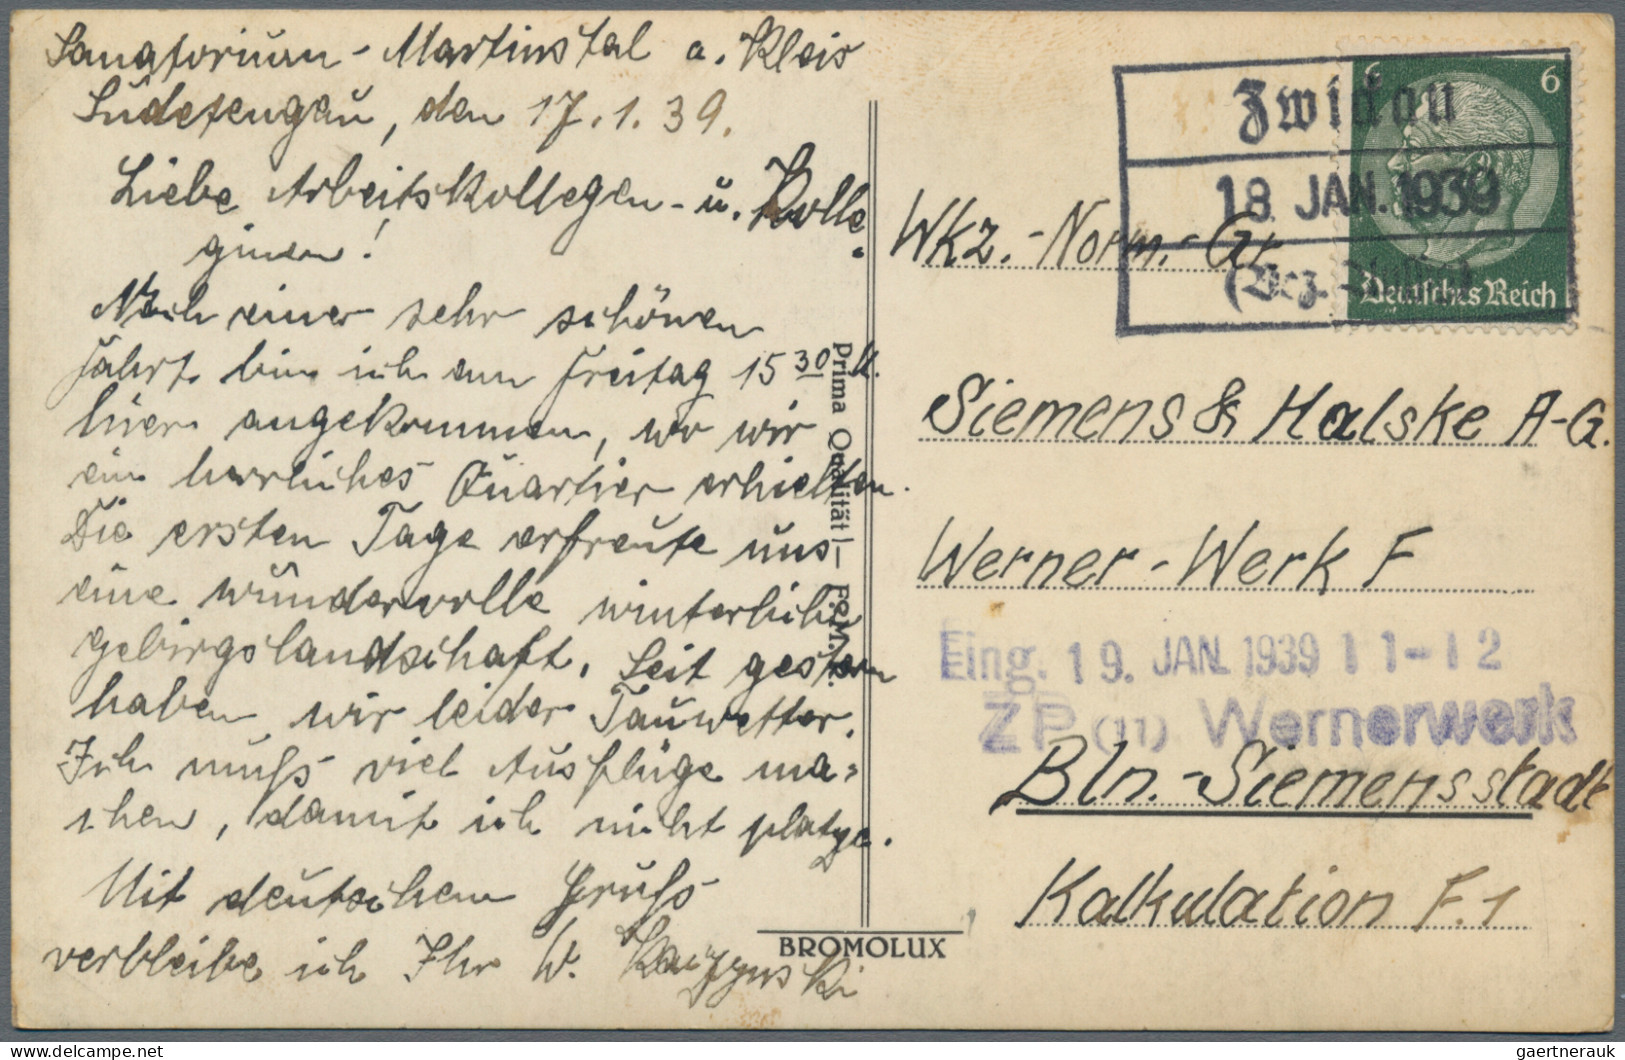 Sanatorium - Martinstal a. Kleis
Sudetengau, den 17.1.39.
Liebe Arbeitskollegen - u. Kolle-
ginen!
Nach einer sehr schönen
Fahrt bin ich am Freitag 15 30 U.
hier angekommen, wo wir
ein herrliches Quartier erhielten.
Die ersten Tage erfreute uns
eine wundervolle winterliche
Gebirgslandschaft. Seit gestern
haben wir leider Tauwetter.
Ich muß viel Ausflüge ma-
chen, damit ich nicht platze.
Mit deutschem Gruß
verbleibe ich Ihr W.
Prima Qualität
BROMOLUX
6 6
Deutsches Reich
Zwickau
18. JAN. 1939
(Bez.
Wkz.-Norm.-Gr.
Siemens & Halske A-G.
Werner-Werk F
Eing. 19. JAN. 1939 11-12
ZP (11) Wernerwerk
Bln.-Siemensstadt
Kalkulation F.1
gaertnerauk